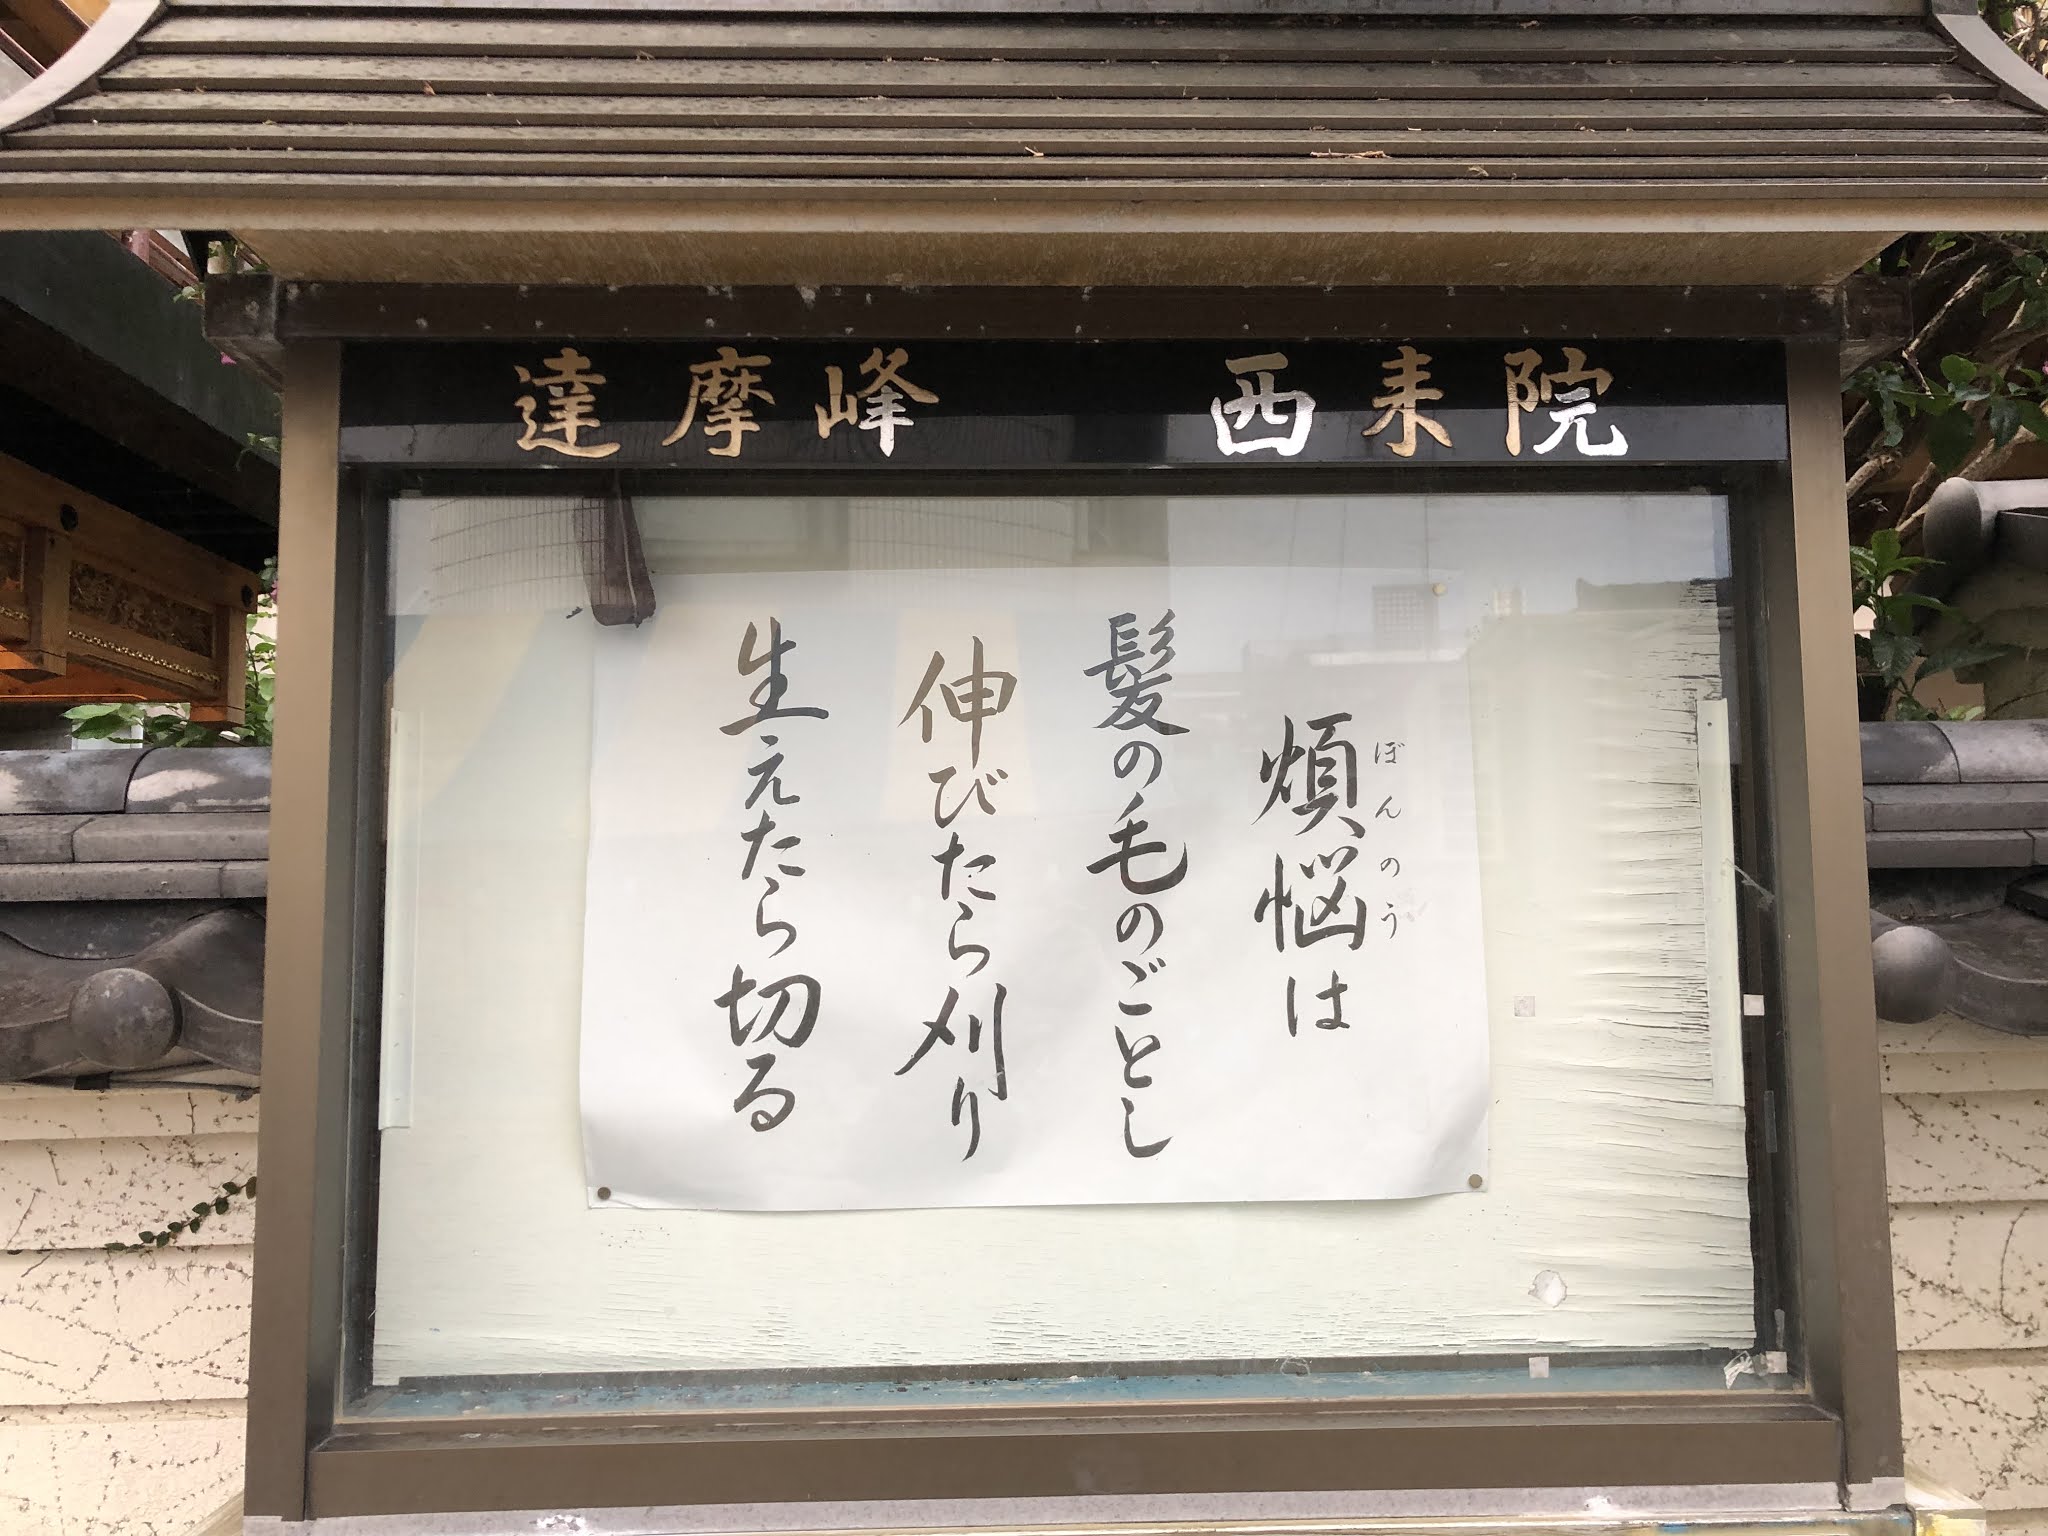 達摩峰 西来院
煩悩は
ぼんのう
髪の毛のごとし
伸びたら刈り
生えたら切る